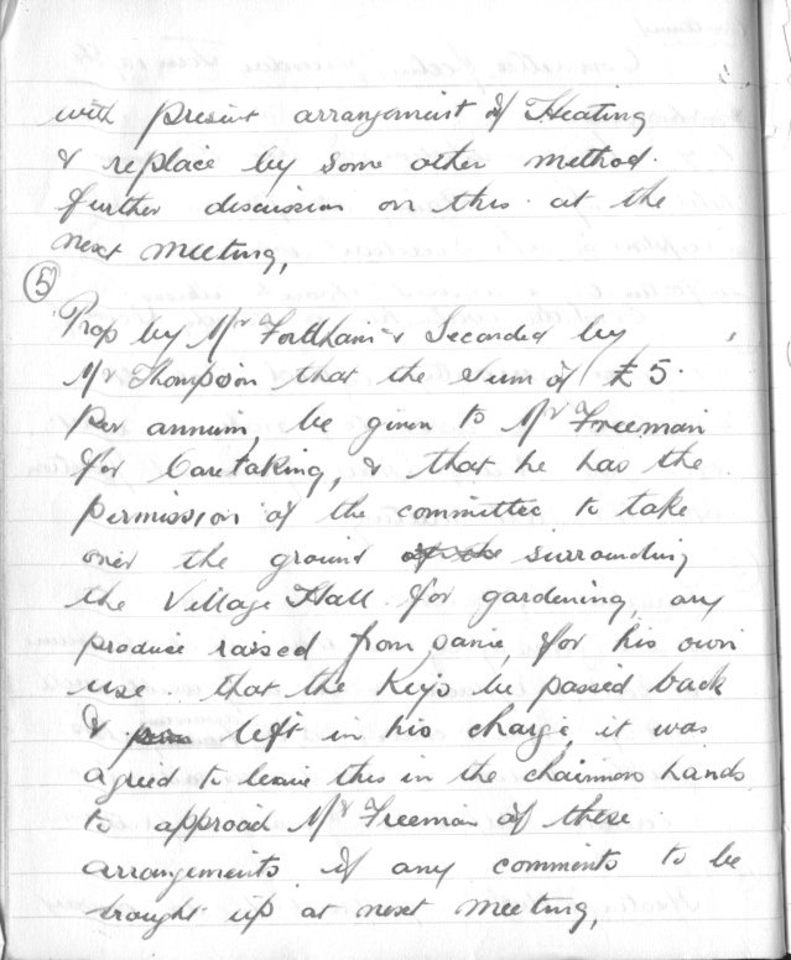 with present arrangement of Heating
& replace by some other method.
further discussion on this at the
next meeting,
(5)
Prop by Mr Fordham & Seconded by
Mr Thompson that the Sum of £5.
per annum, be given to Mr Freeman
for Caretaking, & that he has the
permission of the committee to take
over the ground of the surrounding
the Village Hall for gardening, any
produce raised from same, for his own
use that the Keys be passed back
& left in his charge, it was
agreed to leave this in the chairmans hands
to approach Mr Freeman of these
arrangements if any comments to be
brought up at next meeting,